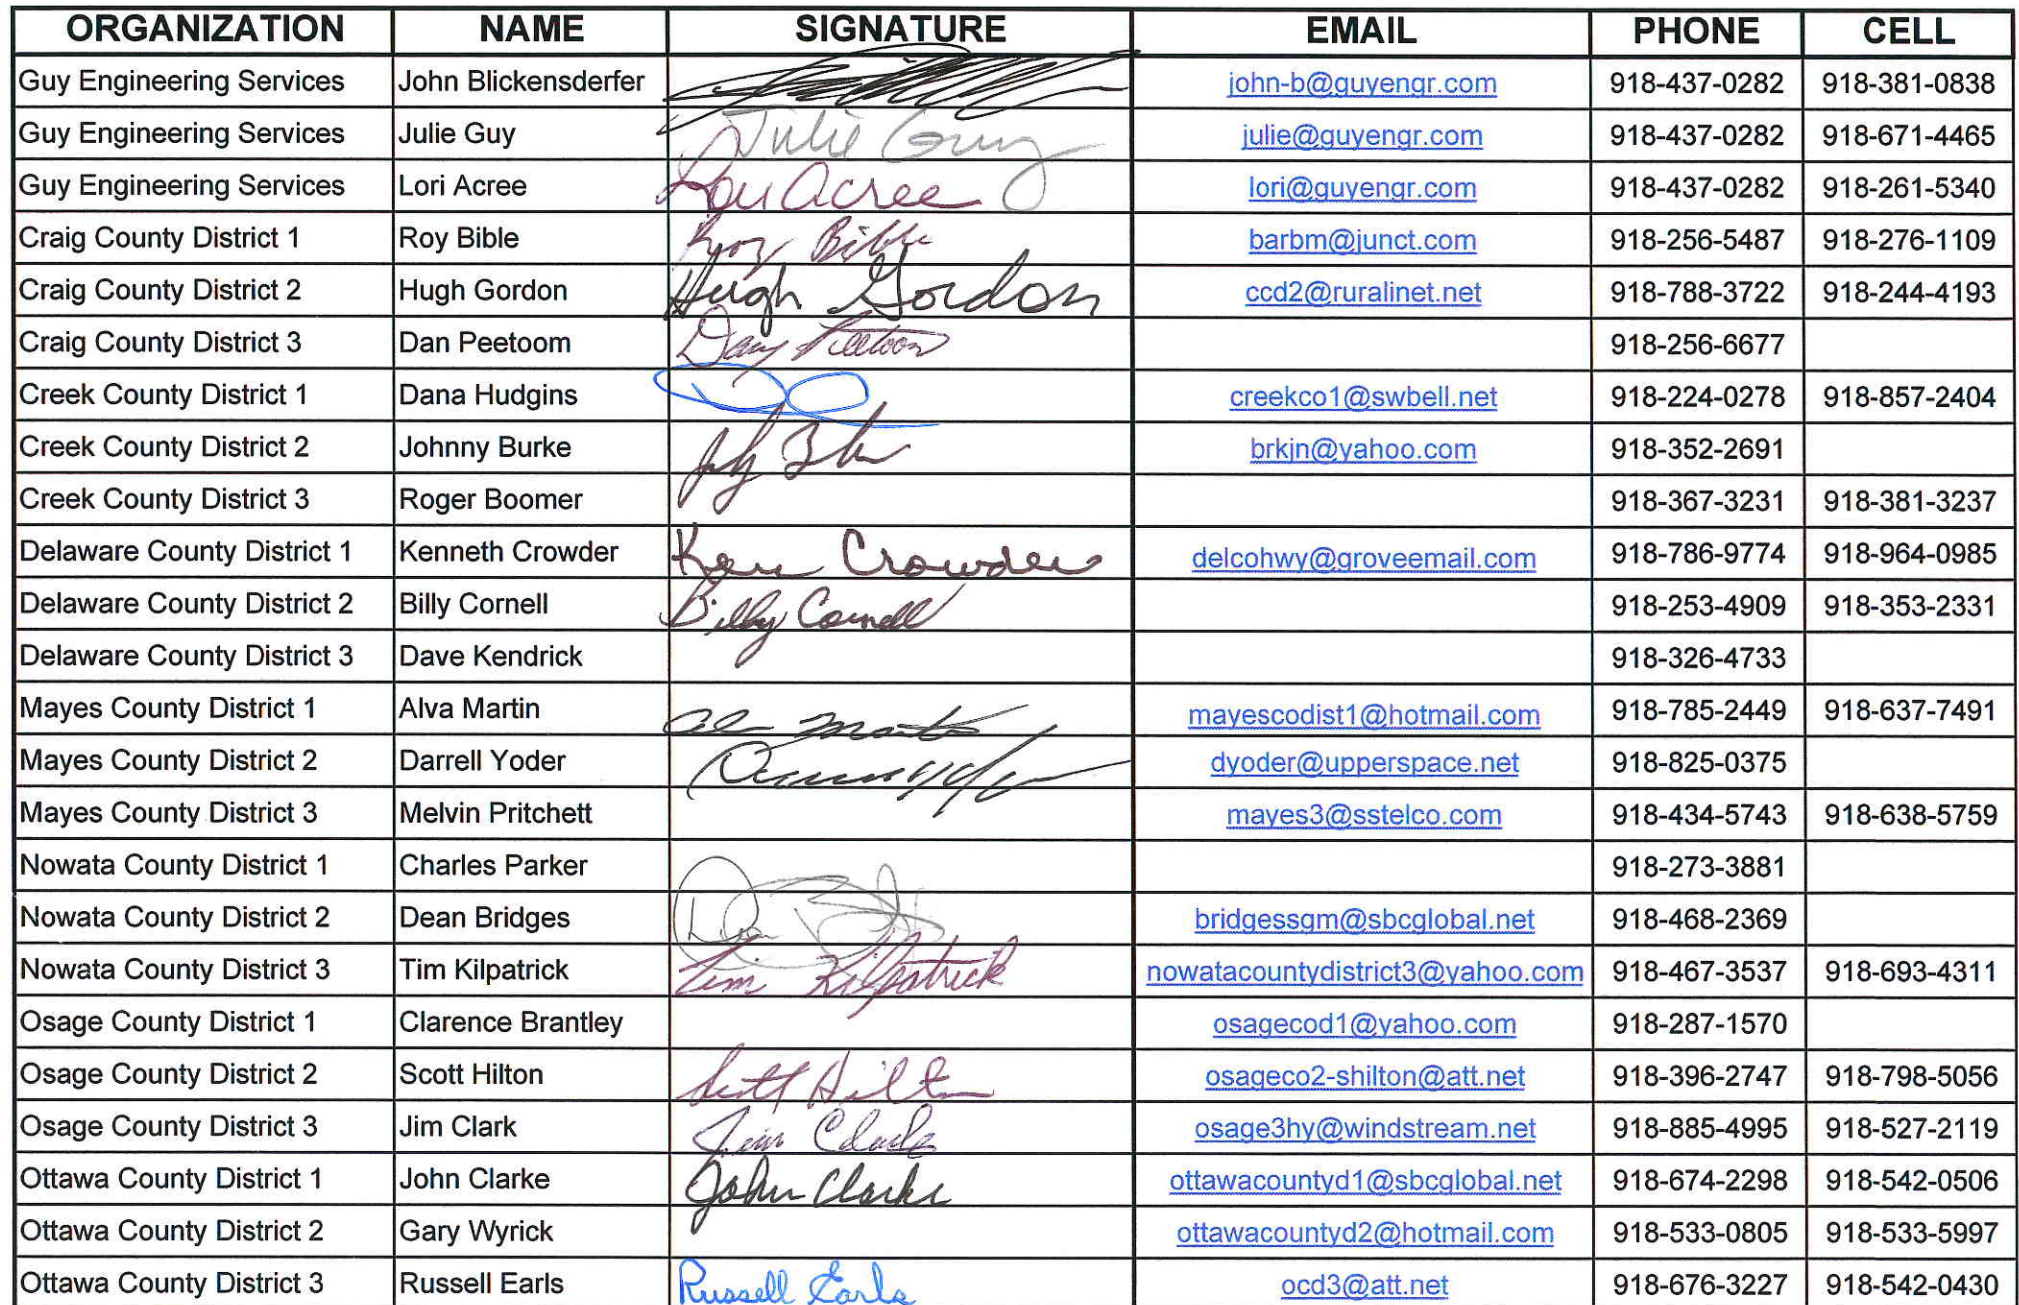 ORGANIZATION NAME SIGNATURE EMAIL PHONE CELL
Guy Engineering Services John Blickensderfer john-b@guyengr.com 918-437-0282 918-381-0838
Guy Engineering Services Julie Guy Julie Guy julie@guyengr.com 918-437-0282 918-671-4465
Guy Engineering Services Lori Acree Lori Acree lori@guyengr.com 918-437-0282 918-261-5340
Craig County District 1 Roy Bible Roy Bible barbm@junct.com 918-256-5487 918-276-1109
Craig County District 2 Hugh Gordon Hugh Gordon ccd2@ruralinet.net 918-788-3722 918-244-4193
Craig County District 3 Dan Peetoom Dan Peetoom 918-256-6677
Creek County District 1 Dana Hudgins creekco1@swbell.net 918-224-0278 918-857-2404
Creek County District 2 Johnny Burke brkjn@yahoo.com 918-352-2691
Creek County District 3 Roger Boomer 918-367-3231 918-381-3237
Delaware County District 1 Kenneth Crowder Ken Crowder delcohwy@groveemail.com 918-786-9774 918-964-0985
Delaware County District 2 Billy Cornell Billy Cornell 918-253-4909 918-353-2331
Delaware County District 3 Dave Kendrick 918-326-4733
Mayes County District 1 Alva Martin Martin mayescodist1@hotmail.com 918-785-2449 918-637-7491
Mayes County District 2 Darrell Yoder dyoder@upperspace.net 918-825-0375
Mayes County District 3 Melvin Pritchett mayes3@sstelco.com 918-434-5743 918-638-5759
Nowata County District 1 Charles Parker 918-273-3881
Nowata County District 2 Dean Bridges bridgessgm@sbcglobal.net 918-468-2369
Nowata County District 3 Tim Kilpatrick Tim Kilpatrick nowatacountydistrict3@yahoo.com 918-467-3537 918-693-4311
Osage County District 1 Clarence Brantley osagecod1@yahoo.com 918-287-1570
Osage County District 2 Scott Hilton Scott Hilton osageco2-shilton@att.net 918-396-2747 918-798-5056
Osage County District 3 Jim Clark Jim Clark osage3hy@windstream.net 918-885-4995 918-527-2119
Ottawa County District 1 John Clarke John Clarke ottawacountyd1@sbcglobal.net 918-674-2298 918-542-0506
Ottawa County District 2 Gary Wyrick ottawacountyd2@hotmail.com 918-533-0805 918-533-5997
Ottawa County District 3 Russell Earls Russell Earls ocd3@att.net 918-676-3227 918-542-0430